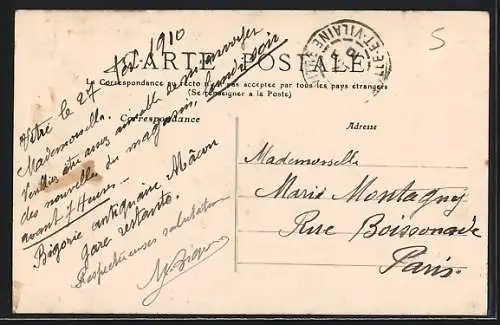 CARTE POSTALE
La Correspondance au recto n'est pas acceptée par tous les pays étrangers
(Se renseigner à la Poste)
Correspondance
Adresse
ILLE-ET-VILAINE
5
le 27 1910
Mademoiselle.
Veuillez être assez aimable de m'envoyer
des nouvelles du magasin, lundi soir
avant 7 Heures —
Bigorie antiquaire Mâcon
gare restante.
Respectueuses salutations
Mademoiselle
Marie Montagny
Rue Boissonade
Paris.